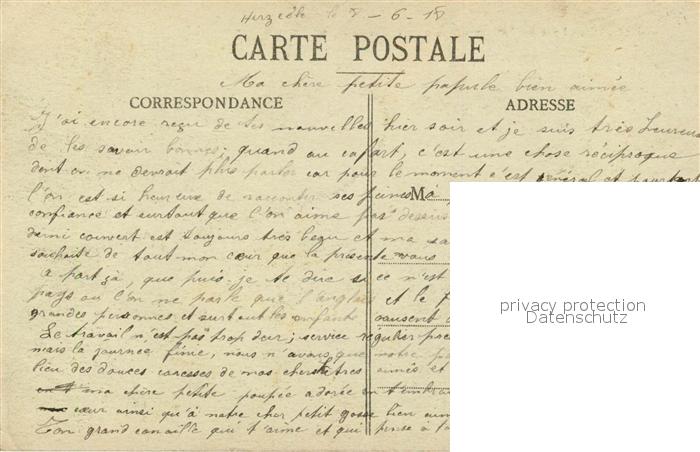 Herzeele le 8-6-18
CARTE POSTALE
Ma chère petite poupoule bien aimée
CORRESPONDANCE ADRESSE
J'ai encore reçu de tes nouvelles hier soir et je suis très heureux
de les savoir bonnes; quand au cafart, c'est une chose réciproque
dont on ne devrait plus parler car pour le moment c'est général et pourtant
l'on est si heureux de raconter ses peines M
confiance et surtout que l'on aime pas dessus
demi couvert est toujours très beau et ma sa
souhaite de tout mon cœur que la présente vous
A part ça, que puis-je te dire si ce n'est
pays ou l'on ne parle que l'anglais et le f
grandes personnes et surtout les enfants causent
Le travail n'est pas trop dur; service régulier
mais la journée finie, nous n'avons que notre
lieu des douces caresses de nos chers êtres aimés et
ma chère petite poupée adorée en t'embra
cœur ainsi qu'à notre cher petit gosse bien aim
Ton grand canaille qui t'aime et qui pense à to
privacy protection
Datenschutz